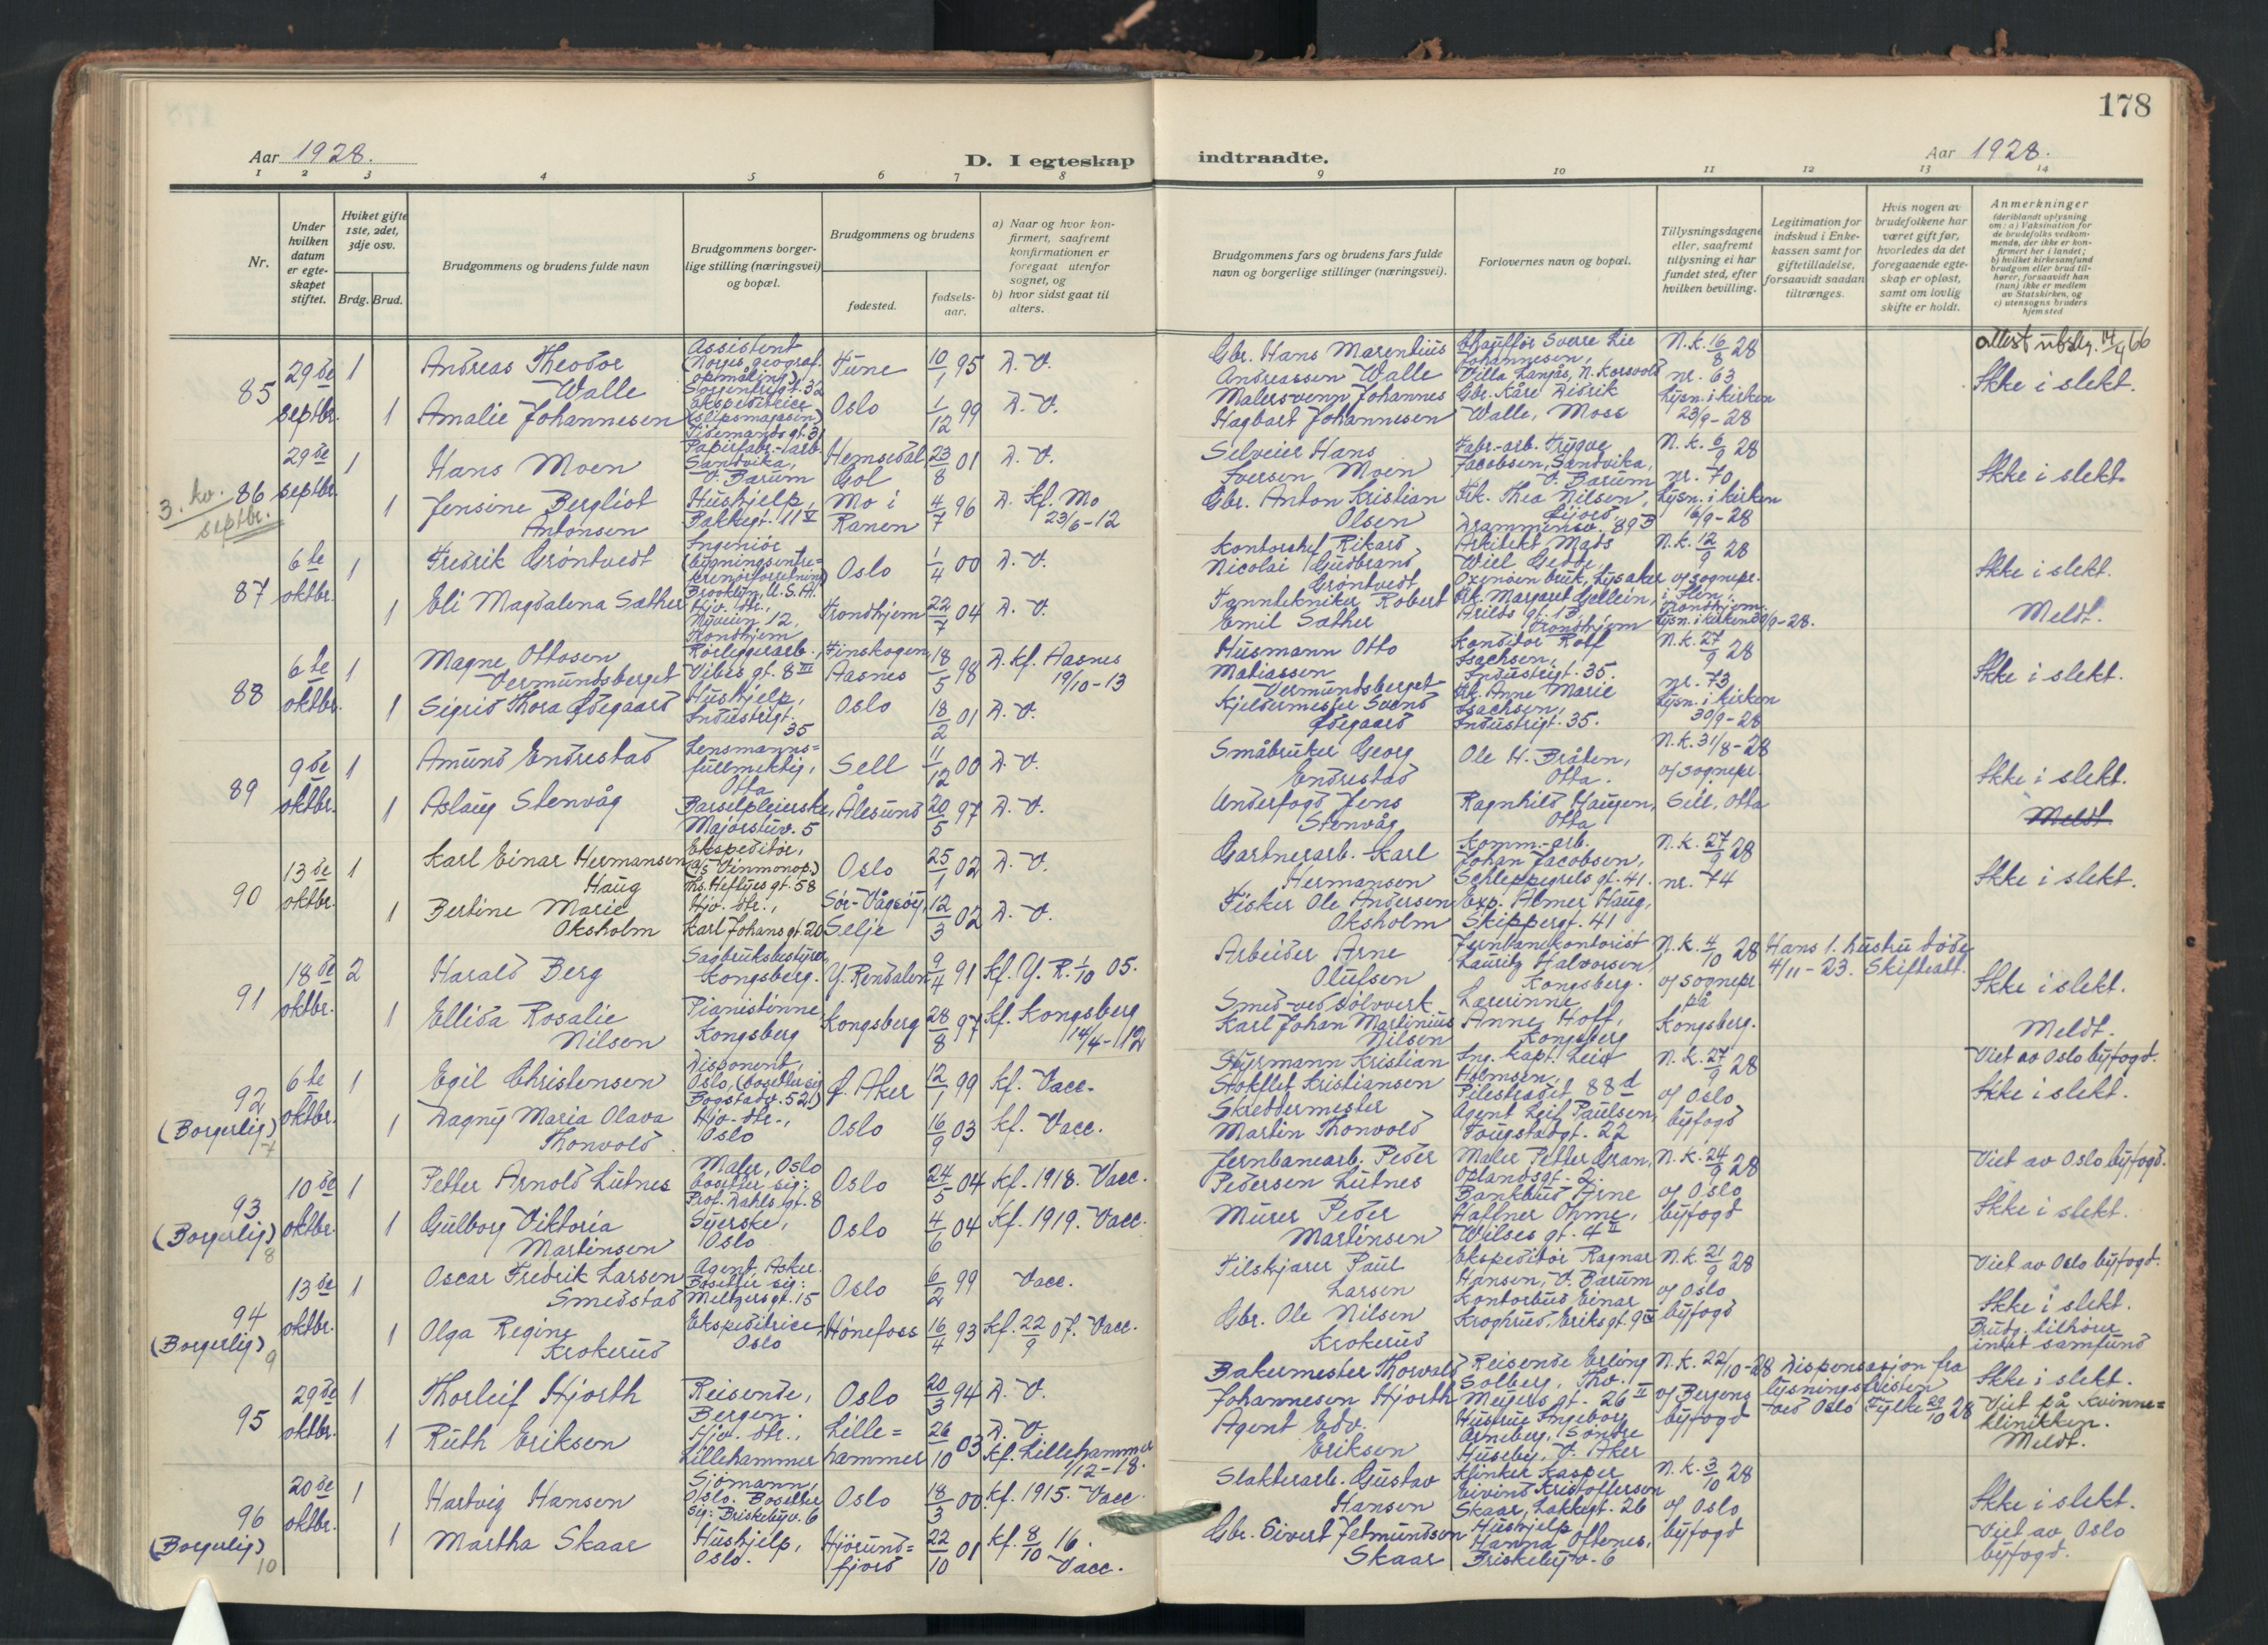 178
Aar 1928.
D. I egteskap indtraadte.
Aar 1928.
1 2 3 4 5 6 7 8 9 10 11 12 13 14
Nr.
Under hvilken datum er egteskapet stiftet.
Hviket gifte 1ste, 2det, 3dje osv.
Brdg. Brud.
Brudgommens og brudens fulde navn
Brudgommens borgerlige stilling (næringsvei) og bopæl.
Brudgommens og brudens
fødested.
fødselsaar.
a) Naar og hvor konfirmert, saafremt konfirmationen er foregaat utenfor sognet, og
b) hvor sidst gaat til alters.
Brudgommens fars og brudens fars fulde navn og borgerlige stillinger (næringsvei).
Forlovernes navn og bopæl.
Tillysningsdagene eller, saafremt tillysning ei har fundet sted, efter hvilken bevilling.
Legitimation for indskud i Enkekassen samt for giftetilladelse, forsaavidt saadan tiltrænges.
Hvis nogen av brudefolkene har været gift før, hvorledes da det foregaaende egteskap er opløst, samt om lovlig skifte er holdt.
Anmerkninger
(deriblandt oplysning om: a) Vaksination for de brudefolks vedkommende, der ikke er konfirmert her i landet;
b) hvilket kirkesamfund brudgom eller brud tilhører, forsaavidt han (hun) ikke er medlem av Statskirken, og
c) utensogns bruders hjemsted
85
29de septbr.
1
Andreas Theodor Walle
Assistent (Norges geograf. opmåling) Sorgenfrigt. 32
Tune
10/1 95
D. V.
Gbr. Hans Marentius Andreassen Walle
Chauffør Sverre Lie Johannesen, Villa Langås, N. Korsvold
N.k. 16/8 28
nr. 63
attest utstg. 14/9 66
Ikke i slekt.
1
Amalie Johannesen
Ekspeditrice (slipsmagasin) Tidemands gt. 31
Oslo
1/12 99
D. V.
Malersvenn Johannes Hagbart Johannesen
Gbr. Kåre Didrik Walle, Moss
Lysn. i kirken 23/9-28
3. kv. septbr.
86
29de septbr.
1
Hans Moen
Papirfabr.-arb. Sandvika, V. Bærum
Hemsedal, Gol
23/8 01
D. V.
Selveier Hans Iversen Moen
Fabr.-arb. Trygve Jacobsen, Sandvika, V. Bærum
N.k. 6/9 28
nr. 70
Ikke i slekt.
1
Jensine Bergliot Antonsen
Hushjelp, Bakkegt. 11 V
Mo i Ranen
4/7 96
D. Kf. Mo 23/6-12
Gbr. Anton Kristian Olsen
Frk. Thea Nilsen, Drammensv. 89 B
Lysn. i kirken 16/9-28
87
6te oktbr.
1
Fredrik Grøntvedt
Ingeniør (bygningsentreprenørforretning) Brooklyn, U.S.A.
Oslo
1/4 00
D. V.
Kontorchef Rikard Nicolai Gudbrand Grøntvedt
Arkitekt Mads Wiel Gedde, Oxenøen bruk, Lysaker
N.k. 12/9 28
Ikke i slekt.
1
Eli Magdalena Sæther
Hjv. dtr., Nyveien 12, Trondhjem
Trondhjem
22/7 04
D. V.
Tanntekniker Robert Emil Sæther
Frk. Margaret Gellein, Arilds gt. 13, Trondhjem
v/ sognepr. i Ilen, Trondhjem. Lysn. i kirken 30/9-28.
Meldt.
88
6te oktbr.
1
Magne Ottosen Vermundsberget
Rørleggerarb., Vibes gt. 8 III
Finskogen, Aasnes
18/5 98
D. Kf. Aasnes 19/10-13
Husmann Otto Matiassen Vermundsberget
Konditor Rolf Isachsen, Industrigt. 35.
N.k. 27/9 28
nr. 73
Ikke i slekt.
1
Sigrid Thora Ødegaard
Hushjelp, Industrigt. 35
Oslo
18/2 01
D. V.
Kjeldermester Svend Ødegaard
Frk. Anne Marie Isachsen, Industrigt. 35.
Lysn. i kirken 30/9-28
89
9de oktbr.
1
Amund Endrestad
Lensmannsfullmektig, Otta
Sell
11/12 00
D. V.
Småbruker Georg Endrestad
Ole H. Bråten, Otta.
N.k. 31/8-28
v/ sognepr. Sell, Otta
Ikke i slekt.
1
Aslaug Stenvåg
Barselpleierske, Majorstuv. 5
Ålesund
20/5 97
D. V.
Underfogd Jens Stenvåg
Ragnhild Haugen, Otta
Meldt
90
13de oktbr.
1
Karl Einar Hermansen Haug
Ekspeditør, (A/S Vinmonop.) Ths. Heftyes gt. 58
Oslo
25/1 02
D. V.
Gartnerarb. Karl Hermansen
Komm.-arb. Johan Jacobsen, Schleppegrels gt. 41.
N.k. 27/9 28
nr. 74
Ikke i slekt.
1
Bertine Marie Oksholm
Hjv. dtr., Karl Johans gt. 20
Sør-Vågsøy, Selje
12/3 02
D. V.
Fisker Ole Andersen Oksholm
Exp. Almer Haug, Skippergt. 41
91
18de oktbr.
2
Harald Berg
Sagbruksbestyrer, Kongsberg.
Y. Rendalen
9/4 91
Kf. Y. R. 1/10 05.
Arbeider Arne Olufsen
Jernbanekontorist Lauritz Halvorsen, Kongsberg.
N.k. 4/10 28
v/ sognepr. på Kongsberg.
Hans 1. hustru døde 4/11-23. Skifteatt.
Ikke i slekt.
1
Ellida Rosalie Nilsen
Pianistinne, Kongsberg
Kongsberg
28/8 97
Kf. Kongsberg 14/4-1912
Smed ved Sølvverk. Karl Johan Martinius Nilsen
Lærerinne Anne Hoff, Kongsberg
Meldt.
92
(Borgerlig)
7
6te oktbr.
1
Egil Christensen
Disponent, Oslo, (bosetter sig Bogstadv. 52 I)
Ø. Aker
12/1 99
Kf. Vacc.
Styrmann Kristian Stoklet Kristiansen
Ing. Kapt. Leid Holmsen, Pilestrædet 88 d
N.k. 27/9 28
v/ Oslo byfogd
Viet av Oslo byfogd.
Ikke i slekt.
1
Dagny Maria Olava Thonvold
Hjv. dtr., Oslo
Oslo
16/9 03
Kf. Vacc.
Skreddermester Martin Thonvold
Agent Leif Paulsen, Fougstadgt. 22
93
(Borgerlig)
8
10de oktbr.
1
Petter Arnold Lutnes
Maler, Oslo bosetter sig: Prof. Dahls gt. 8
Oslo
24/5 04
Kf. 1918. Vacc.
Jernbanearb. Peder Pedersen Lutnes
Maler Petter Gran, Østlandsgt. 2.
N.k. 24/9 28
v/ Oslo byfogd
Viet av Oslo byfogd.
Ikke i slekt.
1
Gulborg Viktoria Martinsen
Syerske, Oslo
Oslo
4/6 04
Kf. 1919. Vacc.
Murer Peder Martinsen
Bankbud Arne Haffner Ohme, Wilses gt. 4 II
94
(Borgerlig)
9
13de oktbr.
1
Oscar Fredrik Larsen Smedstad
Agent, Asker. Bosetter sig: Meltzersgt. 15
Oslo
6/2 99
Vacc.
Filskjærer Paul Larsen
Ekspeditør Ragnar Hansen, V. Bærum
N.k. 21/9 28
v/ Oslo byfogd
Viet av Oslo byfogd.
Ikke i slekt.
Brudg. tilhører intet samfund
1
Olga Regine Krokerud
Ekspeditrice, Oslo
Hønefoss
16/4 93
Kf. 22/9 07. Vacc.
Gbr. Ole Nilsen Krokerud
Kontorbud Einar Kroghrud, Eriks gt. 9 III
95
29de oktbr.
1
Thorleif Hjorth
Reisende, Bergen.
Oslo
20/3 94
D. V.
Bakermester Thorvald Johannesen Hjorth
Reisende Erling Solberg, Thv. Meyers gt. 26 II
N.k. 22/10-28
v/ Bergens byfogd
Dispensasjon fra lysningsfristen ved Oslo Fylke 29/10 28
Ikke i slekt.
Viet på Kvinneklinikken.
Meldt.
1
Ruth Eriksen
Hjv. dtr., Lillehammer
Lillehammer
26/10 03
D. V. Kf. Lillehammer 1/12-18.
Agent Edv. Eriksen
Hustru Ingeborg Arneberg, Søndre Huseby, V. Aker
96
(Borgerlig)
10
20de oktbr.
1
Hartvig Hansen
Sjømann, Oslo. Bosetter sig: Briskebyv. 6
Oslo
18/3 00
Kf. 1915. Vacc.
Slakterarb. Gustav Hansen
Klinker Kasper Eivind Kristoffersen Skaar, Lakkegt. 26
N.k. 3/10 28
v/ Oslo byfogd
Ikke i slekt.
Viet av Oslo byfogd.
1
Martha Skaar
Hushjelp, Oslo.
Hjørundfjord
22/10 01
Kf. 8/10 16. Vacc.
Gbr. Sivert Jetmundsen Skaar
Hushjelp Hanna Oftenes, Briskebyv. 6